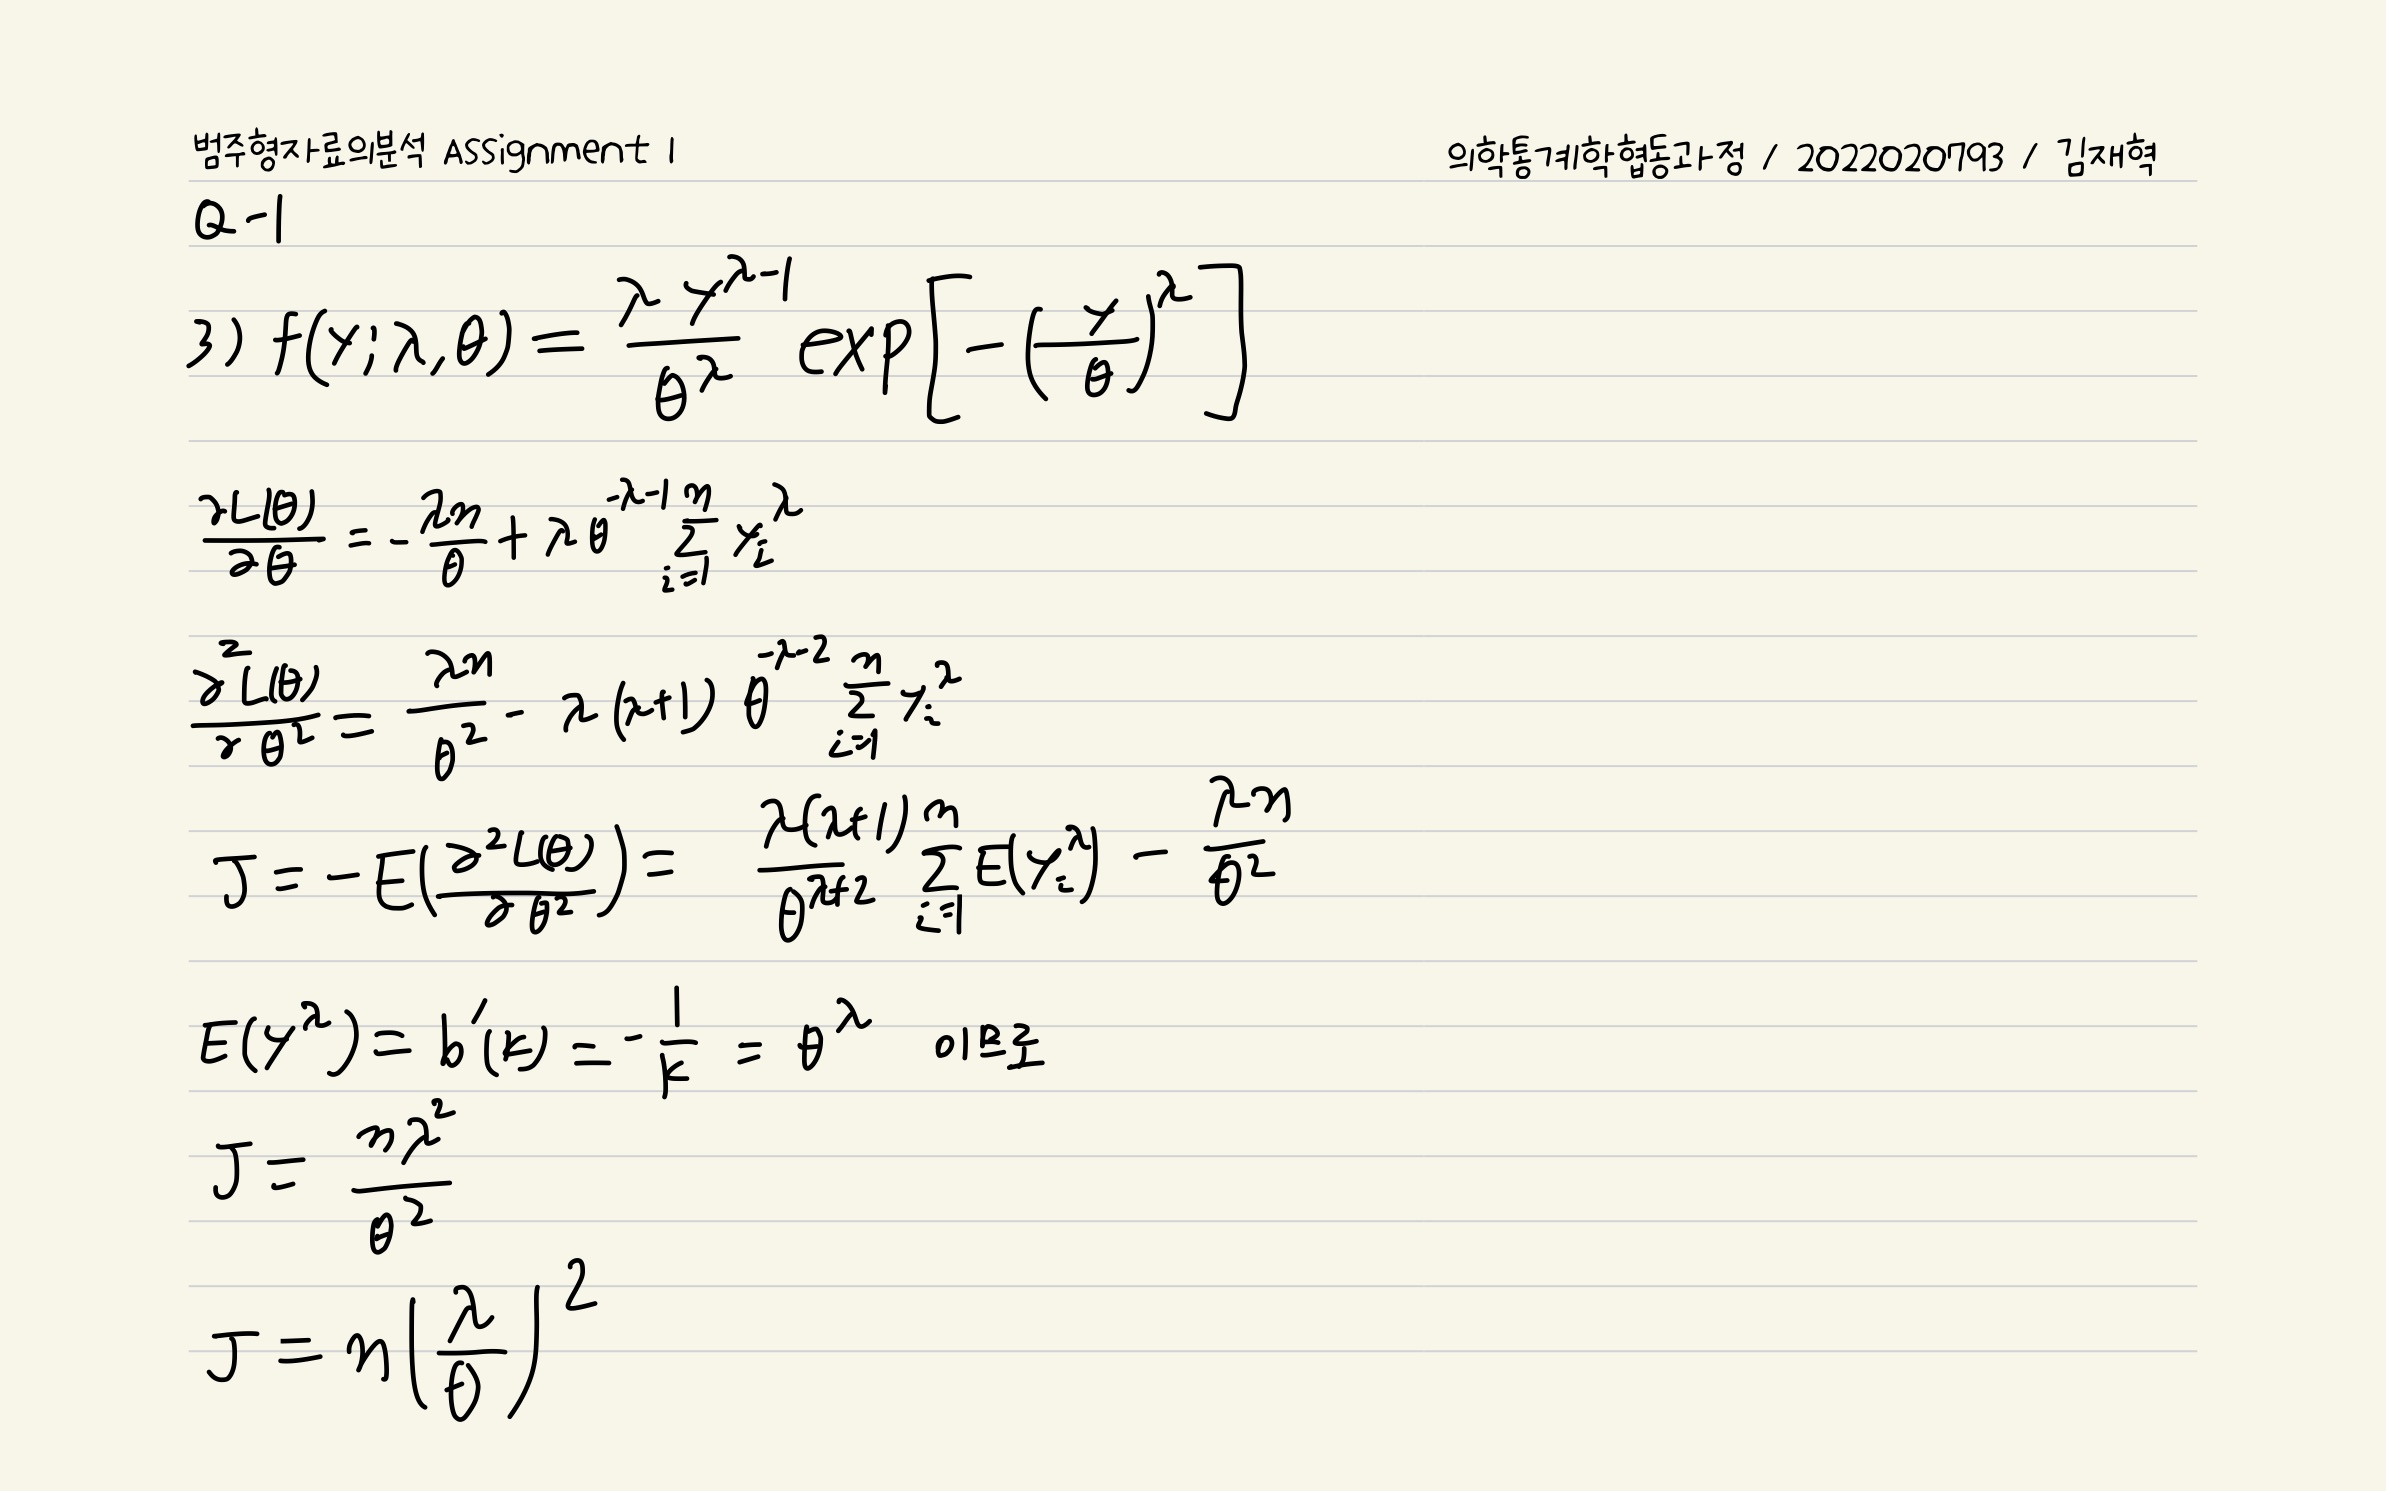 범주형자료의분석 Assignment 1
의학통계학협동과정 / 2022020793 / 김재혁
Q-1
3) f(y; λ, θ) = λ y^(λ-1) / θ^λ exp[-(y/θ)^λ]
∂L(θ)/∂θ = -λn/θ + λ θ^(-λ-1) Σ_(i=1)^n y_i^λ
∂²L(θ)/∂θ² = λn/θ² - λ(λ+1) θ^(-λ-2) Σ_(i=1)^n y_i^λ
J = -E(∂²L(θ)/∂θ²) = λ(λ+1)/θ^(λ+2) Σ_(i=1)^n E(y_i^λ) - λn/θ²
E(y^λ) = b'(k) = -1/k = θ^λ 이므로
J = nλ²/θ²
J = n(λ/θ)²